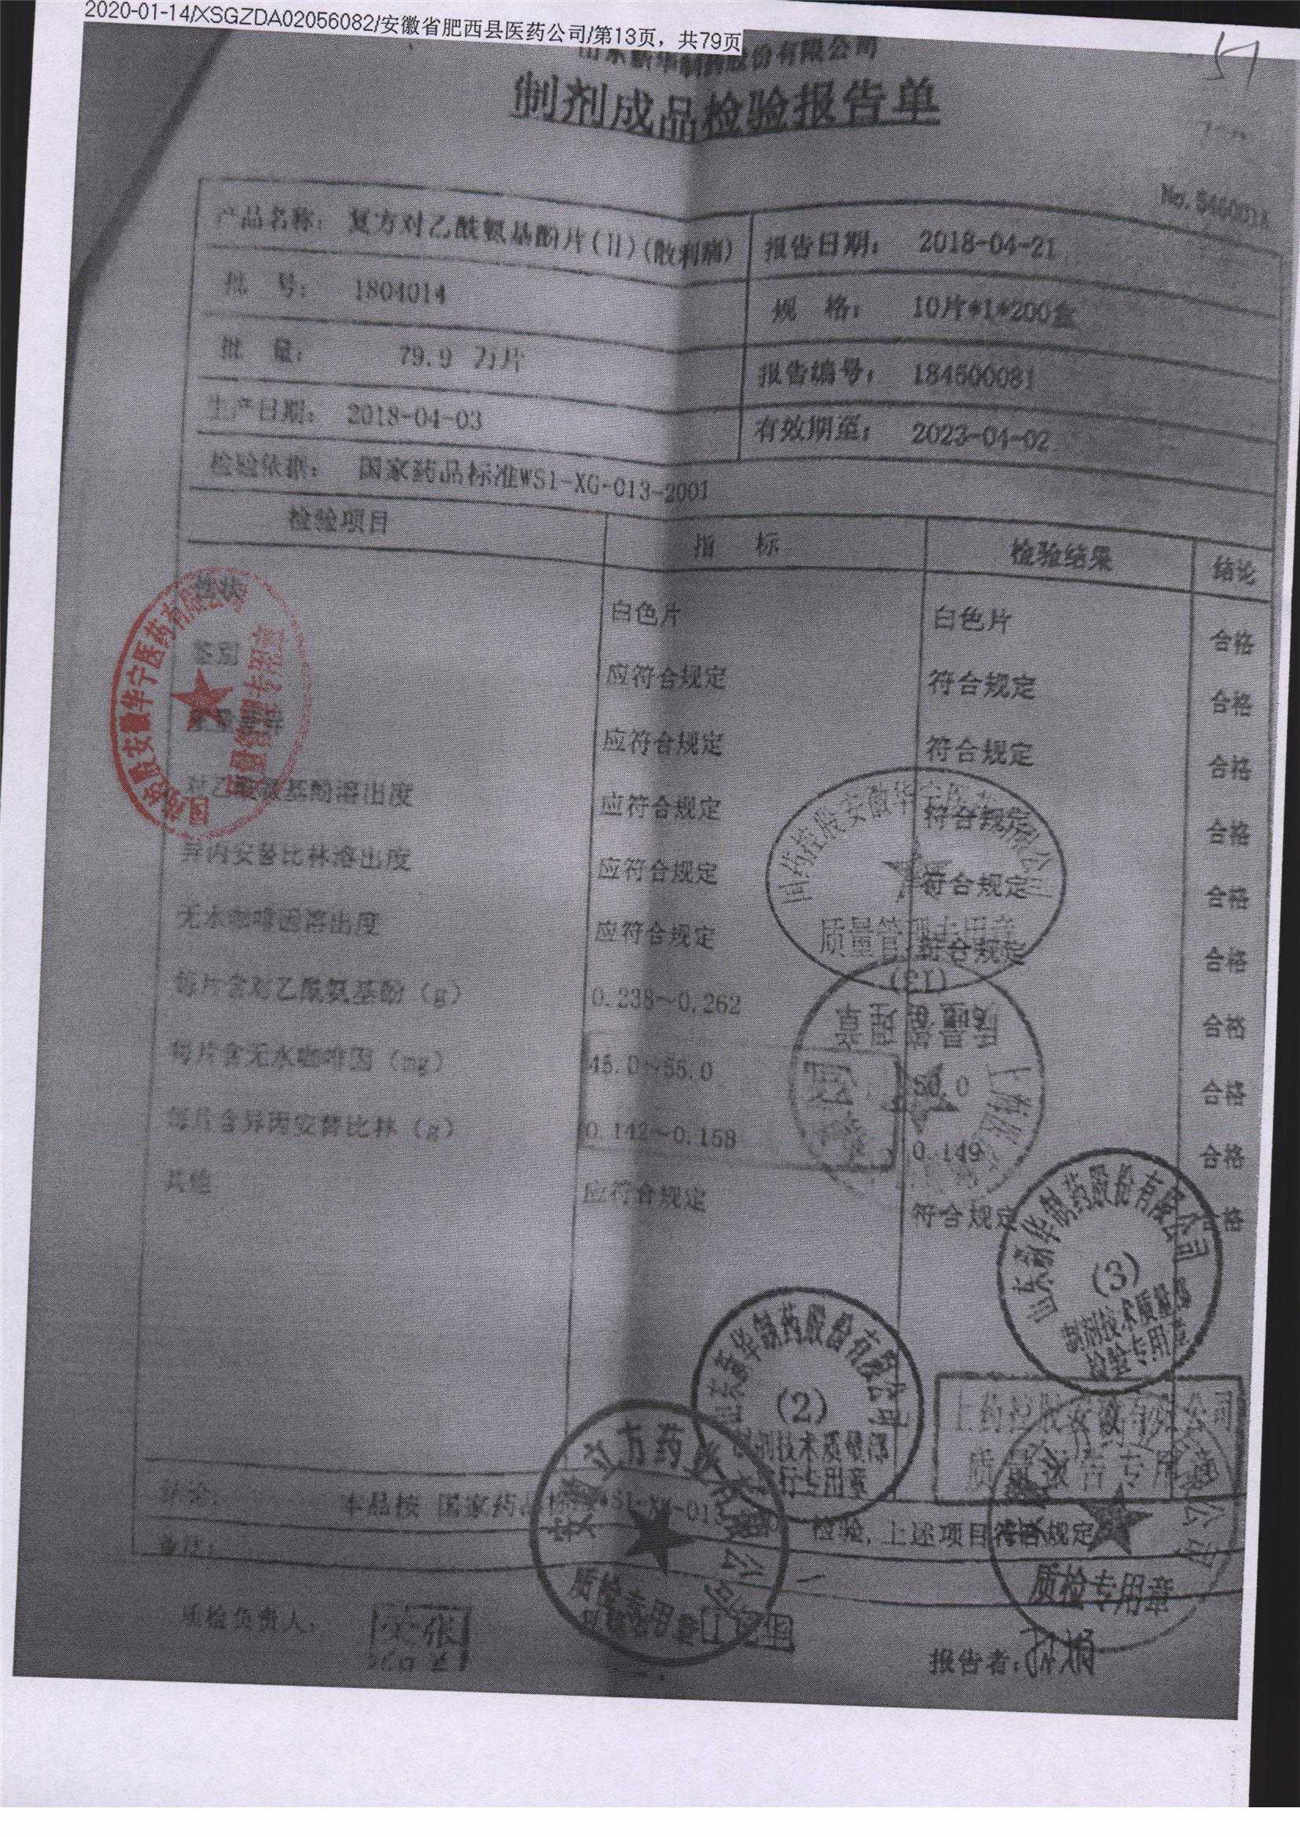 2020-01-14/XSGZDA02056082/安徽省肥西县医药公司/第13页，共79页
51
山东新华制药股份有限公司
制剂成品检验报告单
产品名称： 复方对乙酰氨基酚片(II)(散利痛) 报告日期： 2018-04-21
批 号： 1804014 规 格： 10片*1*200盒
批 量： 79.9 万片 报告编号： 184500081
生产日期： 2018-04-03 有效期至： 2023-04-02
检验依据： 国家药品标准WS1-XG-013-2001
检验项目 指 标 检验结果 结论
性状 白色片 白色片 合格
鉴别 应符合规定 符合规定 合格
应符合规定 符合规定 合格
对乙酰氨基酚溶出度 应符合规定 符合规定 合格
异丙安替比林溶出度 应符合规定 符合规定 合格
无水咖啡因溶出度 应符合规定 符合规定 合格
每片含对乙酰氨基酚（g） 0.238～0.262 合格
每片含无水咖啡因（mg） 45.0～55.0 50.0 合格
每片含异丙安替比林（g） 0.142～0.158 0.149 合格
其他 应符合规定 符合规定 合格
国药控股安徽华宁医药有限公司
质量管理专用章
国药控股安徽华宁医药有限公司
质量管理专用章
(13)
山东新华制药股份有限公司
(3)
制剂技术质量部
检验专用章
山东新华制药股份有限公司
(2)
制剂技术质量部
上药控股安徽有限公司
质量报告专用
结论： 本品按 国家药品标准WS1-XG-01 检验,上述项目符合规定
备注：
安徽立方药业有限公司
质检专用章
质检专用章
质检负责人： 报告者：